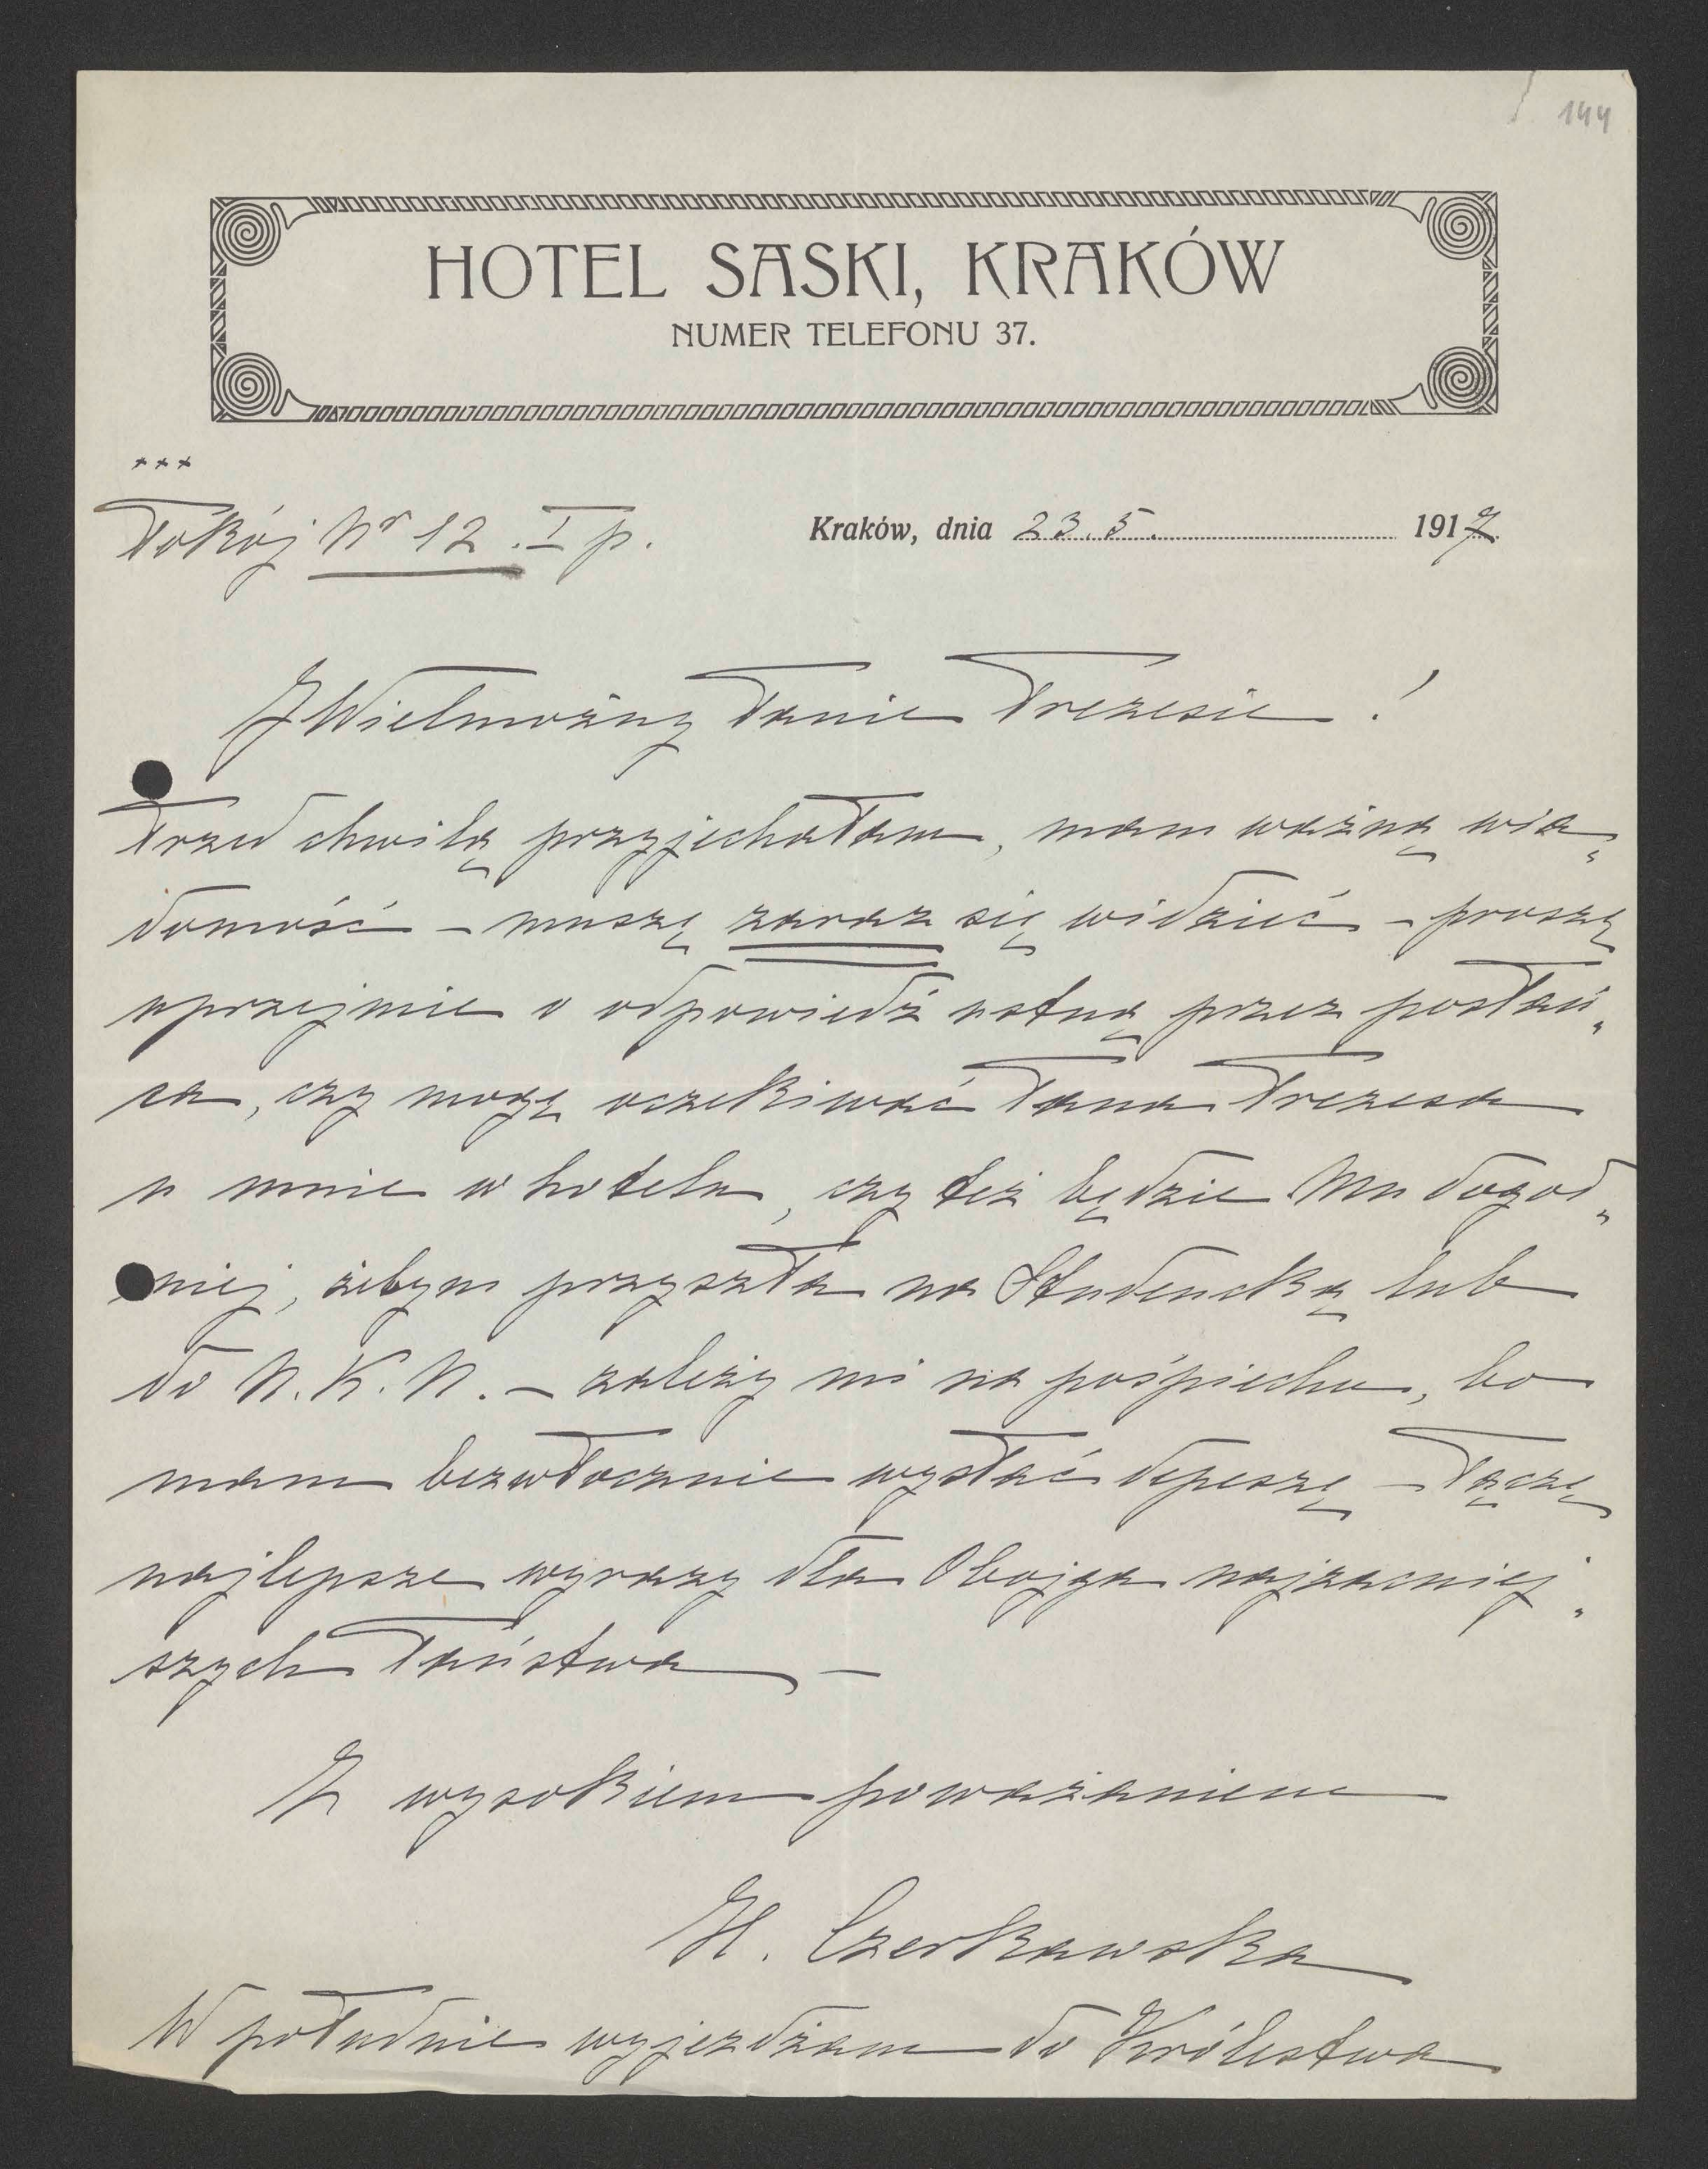 144
HOTEL SASKI, KRAKÓW
NUMER TELEFONU 37.
+++
Pokój Nr 12. I p.
Kraków, dnia 23.5. 1917
JWielmożny Panie Prezesie!
Przed chwilą przyjechałam, mam ważną wia„
domość – muszę zaraz się widzieć – proszę
uprzejmie o odpowiedź ustną przez posłań„
ca, czy mogę oczekiwać Pana Prezesa
u mnie w hotelu, czy też będzie Mu dogod„
niej, żebym przyszła na Studencką lub
do N.K.N. – zależy mi na pośpiechu, bo
mam bezwłocznie wysłać depeszę – Łączę
najlepsze wyrazy dla Obojga najzacniej„
szych Państwa –
Z wysokiem poważaniem
H. Czerkawska
W południe wyjeżdżam do Królestwa